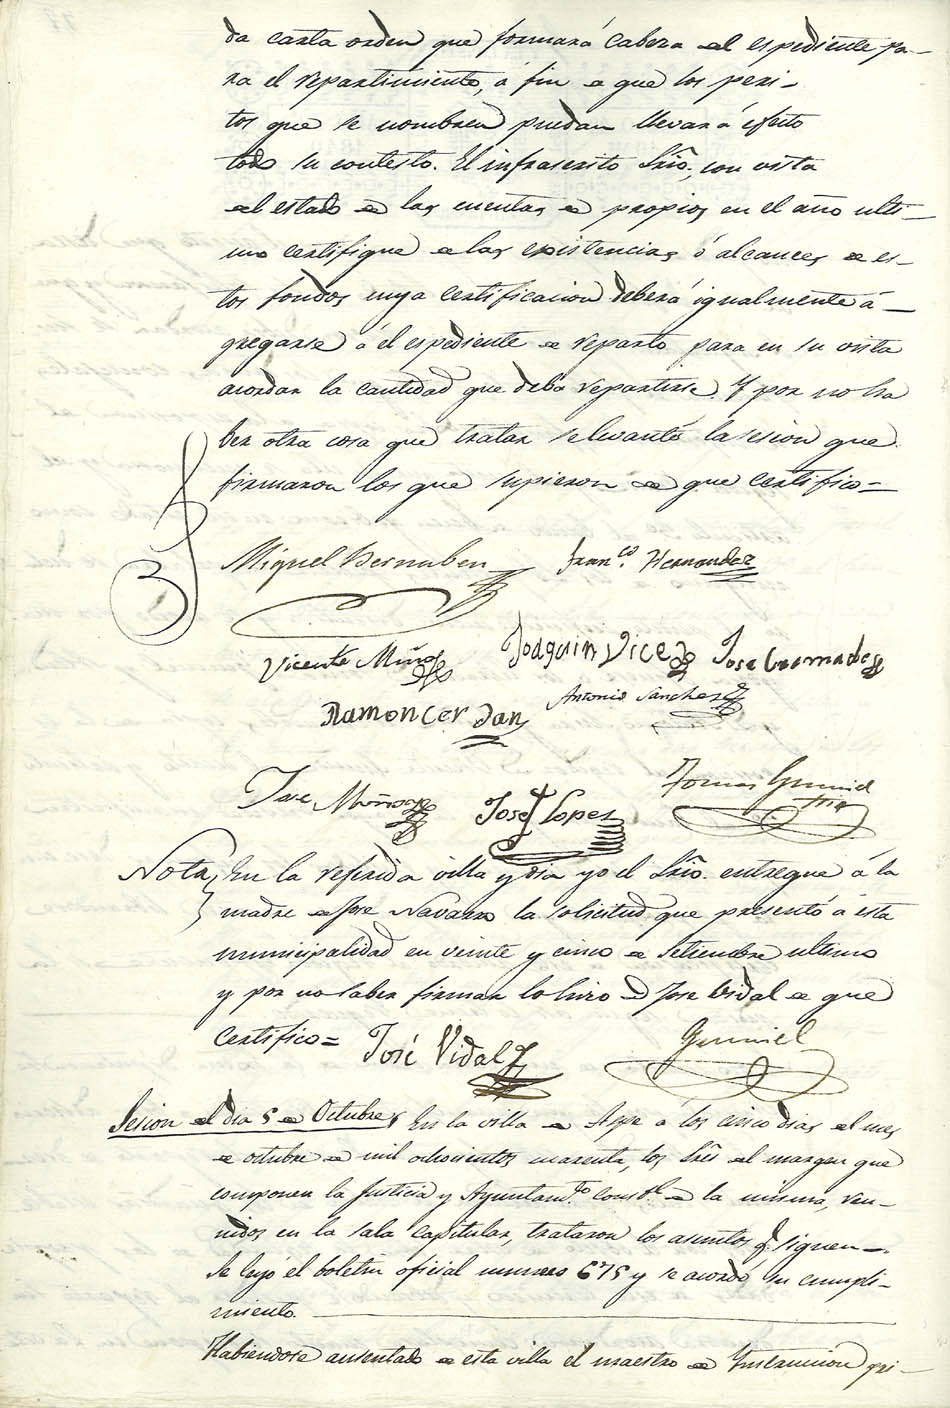 da carta orden que formará cabeza del espediente pa-
ra el repartimiento, á fin de que los peri-
tos que se nombren puedan llevar á efecto
todo su contesto. El infrascrito Srîo. con vista
del estado de las cuentas de propios en el año ulti-
mo certifique de las existencias ó alcances de es-
tos fondos cuya certificacion deberá igualmente á-
gregarse á el espediente de reparto para en su vista
acordar la cantidad que deba repartirse. Y por no ha
ber otra cosa que tratar se levantó la sesion que
firmaron los que supieron de que certifico=
Miguel Bernabeu Fran.co Hernandez
Vicente Muñoz Joaquin Vicedo Jose Cremades
Ramon Cerdan Antonio Sanchez
Jose Muñoz José Lopez Tomas Gumiel
Srio
Nota, En la referida villa y dia yo el Srîo. entregue á la
madre de Jose Navarro la solicitud que presentó á esta
municipalidad en veinte y cinco de Setiembre ultimo
y por no saber firmar lo hizo D Jose Vidal de que
certifico= José Vidal Gumiel
Sesion del dia 5 de Octubre, En la villa de Aspe á los cinco dias del mes
de octubre de mil ochocientos cuarenta, los Srês del margen que
componen la Justicia y Ayuntam.to const.l de la misma, reu-
nidos en la sala capitular, trataron los asuntos q. siguen=.
Se leyó el boletin oficial numero 675 y se acordó su cumpli-
miento.
Habiendose ausentado de esta villa el maestro de Instruccion pri-